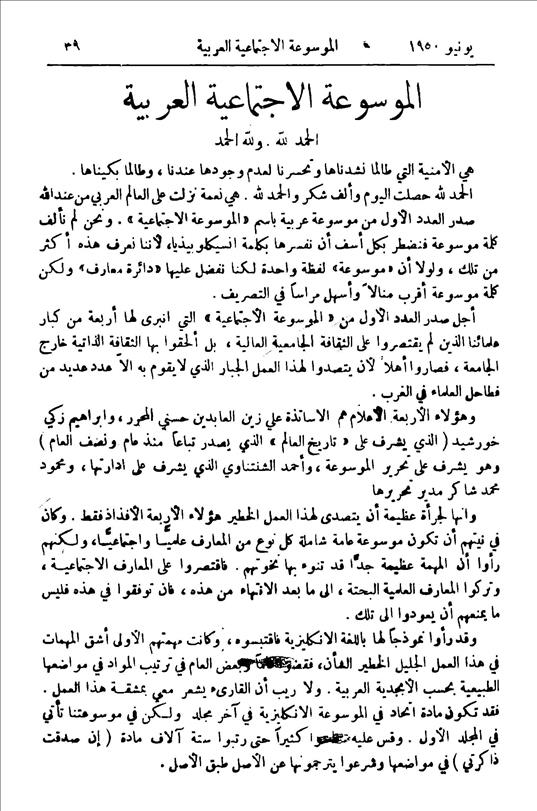 يونيو ١٩٥٠
الموسوعة الاجتماعية العربية
٣٩
الموسوعة الاجتماعية العربية
الحمد لله . ولله الحمد
هي الأمنية التي طالما نشدناها وتحسرنا لعدم وجودها عندنا ، وطالما بكيناها .
الحمد لله حصلت اليوم وألف شكر والحمد لله . هي نعمة نزلت على العالم العربي من عند الله
صدر العدد الأول من موسوعة عربية باسم «الموسوعة الاجتماعية» . ونحن لم نألف
كلمة موسوعة فنضطر بكل أسف أن نفسرها بكلمة انسيكلوبيذيا ، لأننا نعرف هذه أكثر
من تلك ، ولولا أن «موسوعة» لفظة واحدة لكنا نفضل عليها «دائرة معارف» ولكن
كلمة موسوعة أقرب منالاً وأسهل مراساً في التصريف .
أجل صدر العدد الأول من «الموسوعة الاجتماعية» التي انبرى لها أربعة من كبار
علمائنا الذين لم يقتصروا على الثقافة الجامعية العالية ، بل ألحقوا بها الثقافة الذاتية خارج
الجامعة ، فصاروا أهلاً لأن يتصدوا لهذا العمل الجبار الذي لا يقوم به الاّ عدد عديد من
فطاحل العلماء في الغرب .
وهؤلاء الأربعة الأعلام هم الاساتذة علي زين العابدين حسني المحرر ، وابراهيم زكي
خورشيد ( الذي يشرف على «تاريخ العالم» الذي يصدر تباعاً منذ عام ونصف العام )
وهو يشرف على تحرير الموسوعة ، وأحمد الشنتناوي الذي يشرف على ادارتها ، ومحمود
محمد شاكر مدير تحريرها
وانها لجرأة عظيمة أن يتصدى لهذا العمل الخطير هؤلاء الأربعة الأفذاذ فقط . وكان
في نيتهم أن تكون موسوعة عامة شاملة كل نوع من المعارف علميًّا واجتماعيًّا ، ولكنهم
رأوا أن المهمة عظيمة جدًّا قد تنوء بها نخوتهم . فاقتصروا على المعارف الاجتماعية ،
وتركوا المعارف العلمية البحتة ، الى ما بعد الانتهاء من هذه ، فان توفقوا في هذه فليس
ما يمنعهم أن يعودوا الى تلك .
وقد رأوا نموذجاً لها باللغة الانكليزية فاقتبسوه ، وكانت مهمتهم الأولى أشق المهمات
في هذا العمل الجليل الخطير الشأن ، وبعض العام في ترتيب المواد في مواضعها
الطبيعية بحسب الأبجدية العربية . ولا ريب أن القارىء يشعر معي بمشقة هذا العمل .
فقد تكون مادة اتحاد في الموسوعة الانكليزية في آخر مجلد ولكن في موسوعتنا تأتي
في المجلد الأول . وقس عليه كثيراً حتى رتبوا ستة آلاف مادة ( إن صدقت
ذاكرتي ) في مواضعها وشرعوا يترجمونها عن الأصل طبق الأصل .